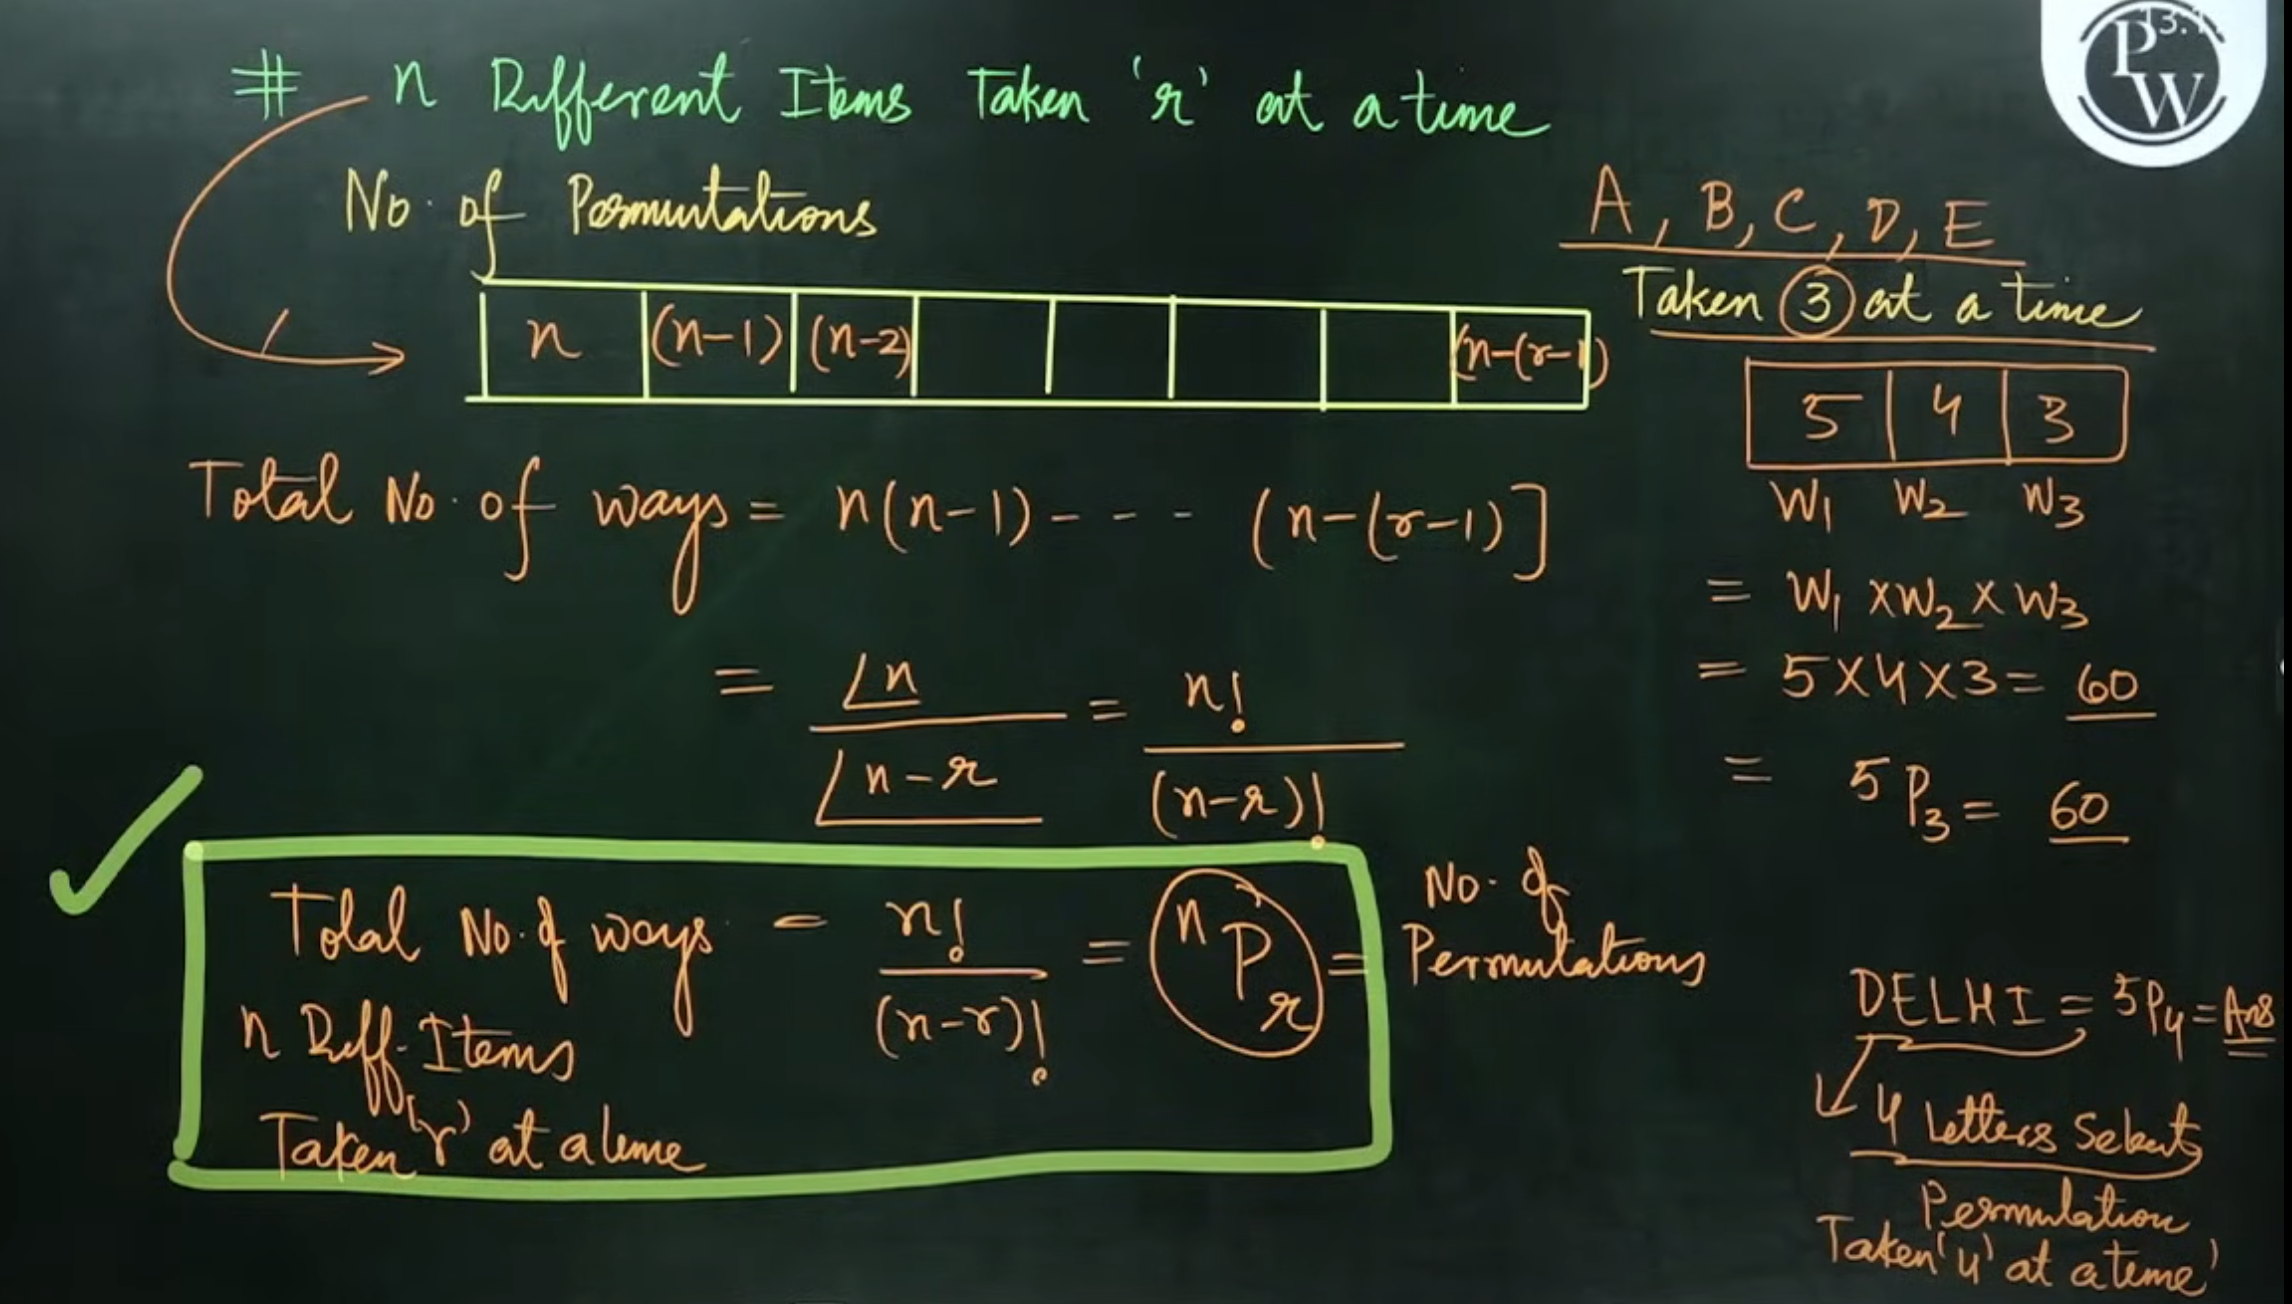 # n Different Items Taken 'r' at a time
No. of Permutations
n (n-1) (n-2) (n-(r-1))
Total No. of ways = n(n-1) - - - (n-(r-1)]
= ∠n / ∠n-r = n! / (n-r)!
Total No. of ways = n! / (n-r)! = nPr = No. of Permutations
n Diff. Items
Taken 'r' at a time
A, B, C, D, E
Taken 3 at a time
5 4 3
W1 W2 W3
= W1 x W2 x W3
= 5 x 4 x 3 = 60
= 5P3 = 60
DELHI = 5P4 = Ans
4 Letters Select
Permutation
Taken '4' at a time'
PW